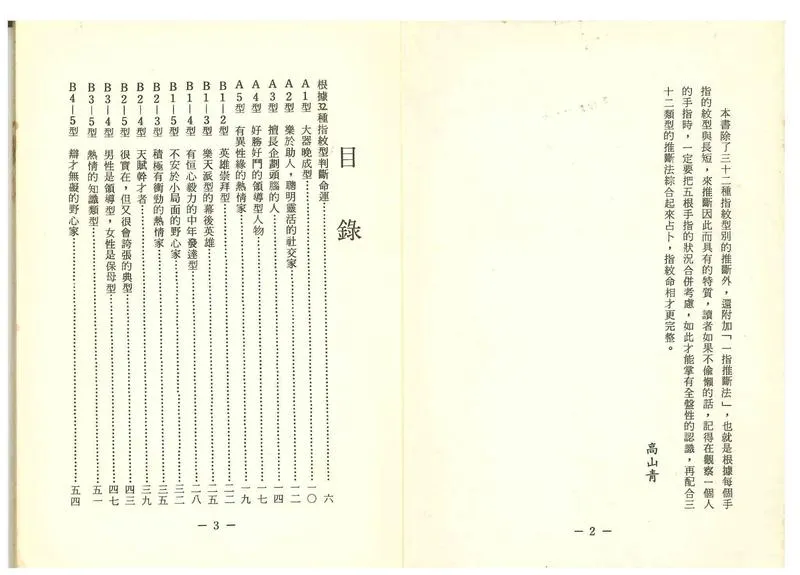 本書除了三十二種指紋型別的推斷外，還附加「一指推斷法」，也就是根據每個手
指的紋型與長短，來推斷因此而具有的特質，讀者如果不偷懶的話，記得在觀察一個人
的手指時，一定要把五根手指的狀況合併考慮，如此才能掌有全盤性的認識，再配合三
十二類型的推斷法綜合起來占卜，指紋命相才更完整。
高山青
— 2 —
目錄
根據32種指紋型判斷命運……六
A1型 大器晚成型……一〇
A2型 樂於助人，聰明靈活的社交家……一二
A3型 擅長企劃頭腦的人……一四
A4型 好勝好鬥的領導型人物……一七
A5型 有異性緣的熱情家……一九
B1—2型 英雄崇拜型……二二
B1—3型 樂天派型的幕後英雄……二五
B1—4型 有恒心毅力的中年發達型……二八
B1—5型 不安於小局面的野心家……三二
B2—3型 積極有衝勁的熱情家……三五
B2—4型 天賦幹才者……三九
B2—5型 很實在，但又很會誇張的典型……四三
B3—4型 男性是領導型，女性是保母型……四七
B3—5型 熱情的知識類型……五一
B4—5型 辯才無礙的野心家……五四
— 3 —